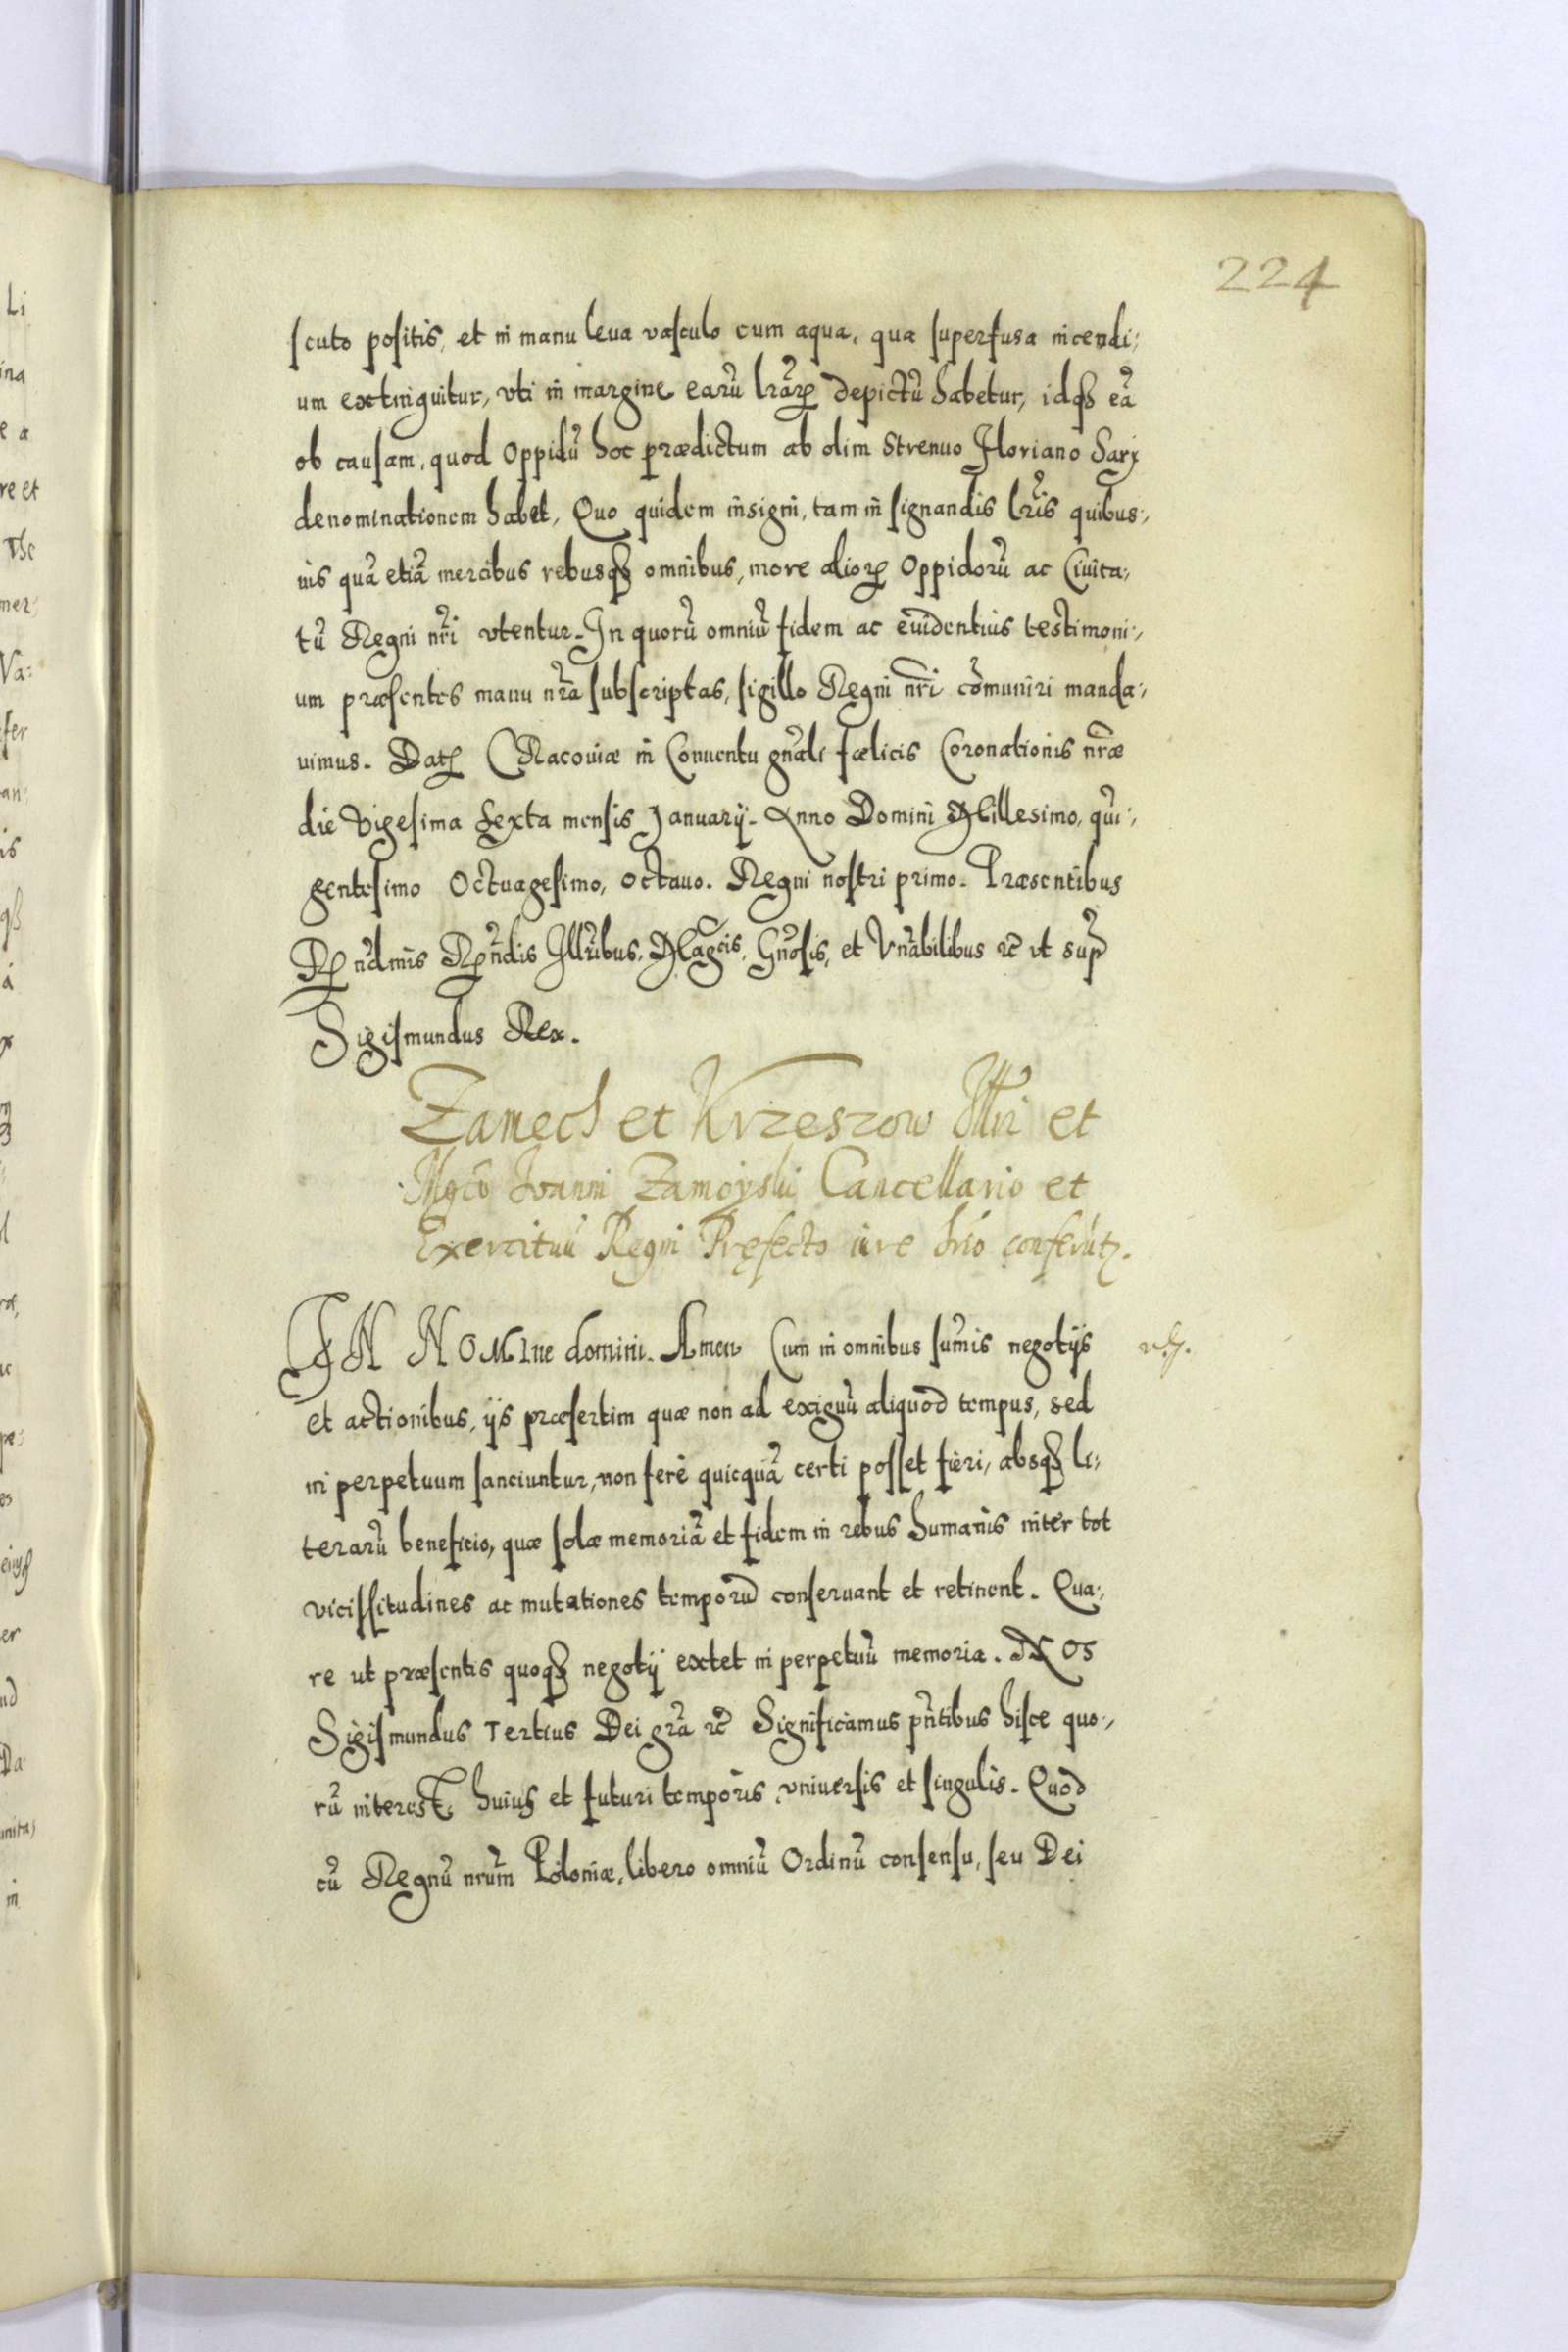 224
scuto positis, et in manu leua vasculo cum aqua, qua superfusa incendi:
um extinguitur, vti in margine earũ lrãrꝝ depictũ habetur, idqꝫ eã
ob causam, quod Oppidũ hoc prædictum ab olim Strenuo Floriano Sarÿ
denominationem habet, Quo quidem insigni, tam in signandis lr̃is quibus:
uis quã etiã mercibus rebusqꝫ omnibus, more aliorꝝ Oppidorũ ac Ciuita:
tũ Regni nr̃i vtentur. In quorũ omniũ fidem ac euidentius testimoni:
um præsentes manu nr̃a subscriptas, sigillo Regni nr̃i cõmuniri manda:
uimus. Datꝫ CRacouiæ in Conuentu gnãli fælicis Coronationis nr̃æ
die Vigesima Sexta mensis Januarÿ. Anno Domini Millesimo, qui:
gentesimo Octuagesimo, octauo. Regni nostri primo. Præsentibus
Rꝫndmis Rꝫndis Illr̃ibus, Mag̃cis, Gnõsis, et Vnãbilibus ꝛc̃ vt sup̃
Sigismundus Rex.
Zamech et Krzeszow Illri et
Mgco Ioanni Zamoyski Cancellario et
Exercituũ Regni Pręfecto iure hrio conferũtꝫ.
IN NOMIne domini. Amen Cum in omnibus sum̃is negotÿs
et actionibus, ÿs præsertim quæ non ad exiguũ aliquod tempus, sed
in perpetuum sanciuntur, non ferè quicquã certi posset fieri, absqꝫ li:
terarũ beneficio, quæ solæ memoriã et fidem in rebus humanis inter tot
vicissitudines ac mutationes temporũ conseruant et retinent. Qua:
re ut præsentis quoqꝫ negotÿ extet in perpetuũ memoria. NOS
Sigismundus Tertius Dei gr̃a ꝛc̃ Significamus pñtibus hisce quo:
rũ interest, huius et futuri temporis, vniuersis et singulis. Quod
cũ Regnũ nrũm Poloniæ, libero omniũ Ordinũ consensu, seu Dei